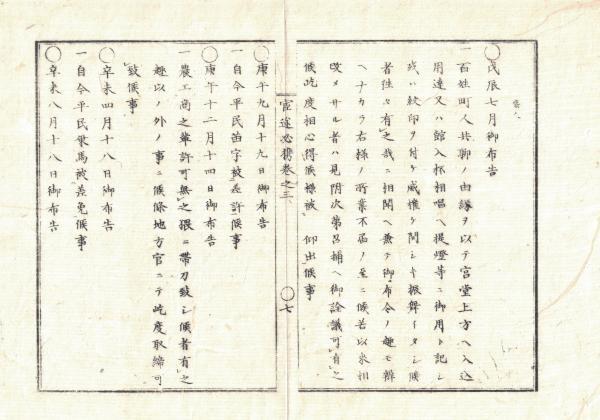 〇戊辰七月御布告
一百姓町人共聊ノ由縁ヲ以テ宮堂上方ヘ入込
用達又ハ館入抔相唱ヘ提燈等ニ御用ト記シ
或ハ紋印ヲ付ケ威権ケ間シキ振舞イタシ候
者往々有之哉ニ相聞ヘ兼テ御布令ノ趣モ辨
ヘナカラ右様ノ所業不届ノ至ニ候若以來相
改メサル者ハ見附次第召捕ヘ御詮議可有之
候此度相心得候様被 仰出候事
官途必携巻之三
〇七
〇庚午九月十九日御布告
一自今平民苗字被差許候事
〇庚午十二月十四日御布告
一農工商之輩許可無之猥ニ帯刀致シ候者有之
趣以ノ外ノ事ニ候條地方官ニテ此度取締可
致候事
〇辛未四月十八日御布告
一自今平民乗馬被差免候事
〇辛未八月十八日御布告